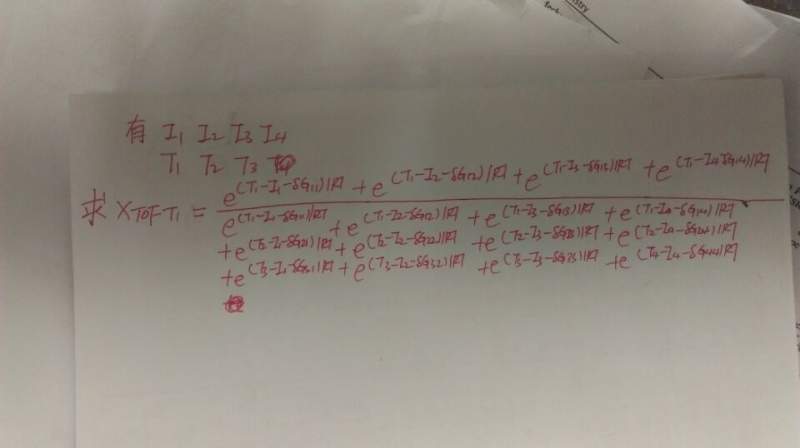 stry
有 I1 I2 I3 I4
T1 T2 T3
求 XTOF-T1 = e^(T1-I1-δG11)/RT + e^(T1-I2-δG12)/RT + e^(T1-I3-δG13)/RT + e^(T1-I4-δG14)/RT
e^(T1-I1-δG11)/RT + e^(T1-I2-δG12)/RT + e^(T1-I3-δG13)/RT + e^(T1-I4-δG14)/RT
+e^(T2-I1-δG21)/RT + e^(T2-I2-δG22)/RT + e^(T2-I3-δG23)/RT + e^(T2-I4-δG24)/RT
+e^(T3-I1-δG31)/RT + e^(T3-I2-δG32)/RT + e^(T3-I3-δG33)/RT + e^(T4-I4-δG44)/RT